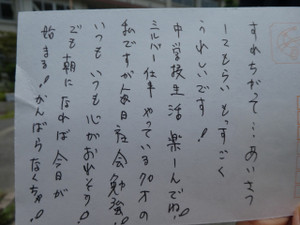 すれちがって…あいさつ
してもらい とっすごく
うれしいです!
中学校生活 楽しんでね!
シルバー仕事 やっている70才の
私ですが毎日社会勉強!
いつも いつも 心がおれそう!
でも朝になれば今日が
始まる!がんばらなくちゃ!